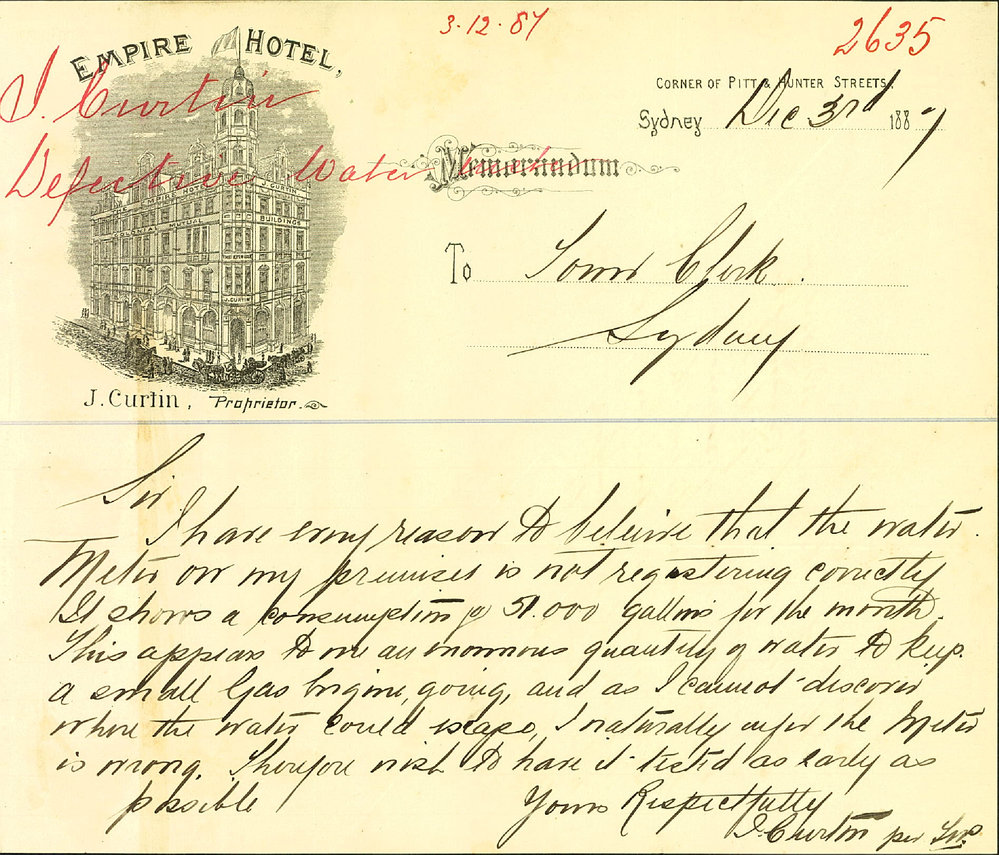 3.12.87
2635
EMPIRE HOTEL,
J. Curtin
Defective Water
CORNER OF PITT & HUNTER STREETS.
Sydney Dec 3rd 1887
Memorandum
To Town Clerk.
Sydney
EMPIRE HOTEL
J. CURTIN
COLONIAL MUTUAL BUILDINGS
J. CURTIN
J. Curtin, Proprietor.
Sir
I have every reason to beleive that the water
Meter on my premises is not registering correctly
It shows a consumption of 51.000 gallons for the month.
This appears to me an enormous quantity of water to keep
a small Gas Engine, going, and as I cannot discover
where the water could escape, I naturally infer the Meter
is wrong. Therefore wish to have it tested as early as
possible
Yours Respectfully
J. Curtin per